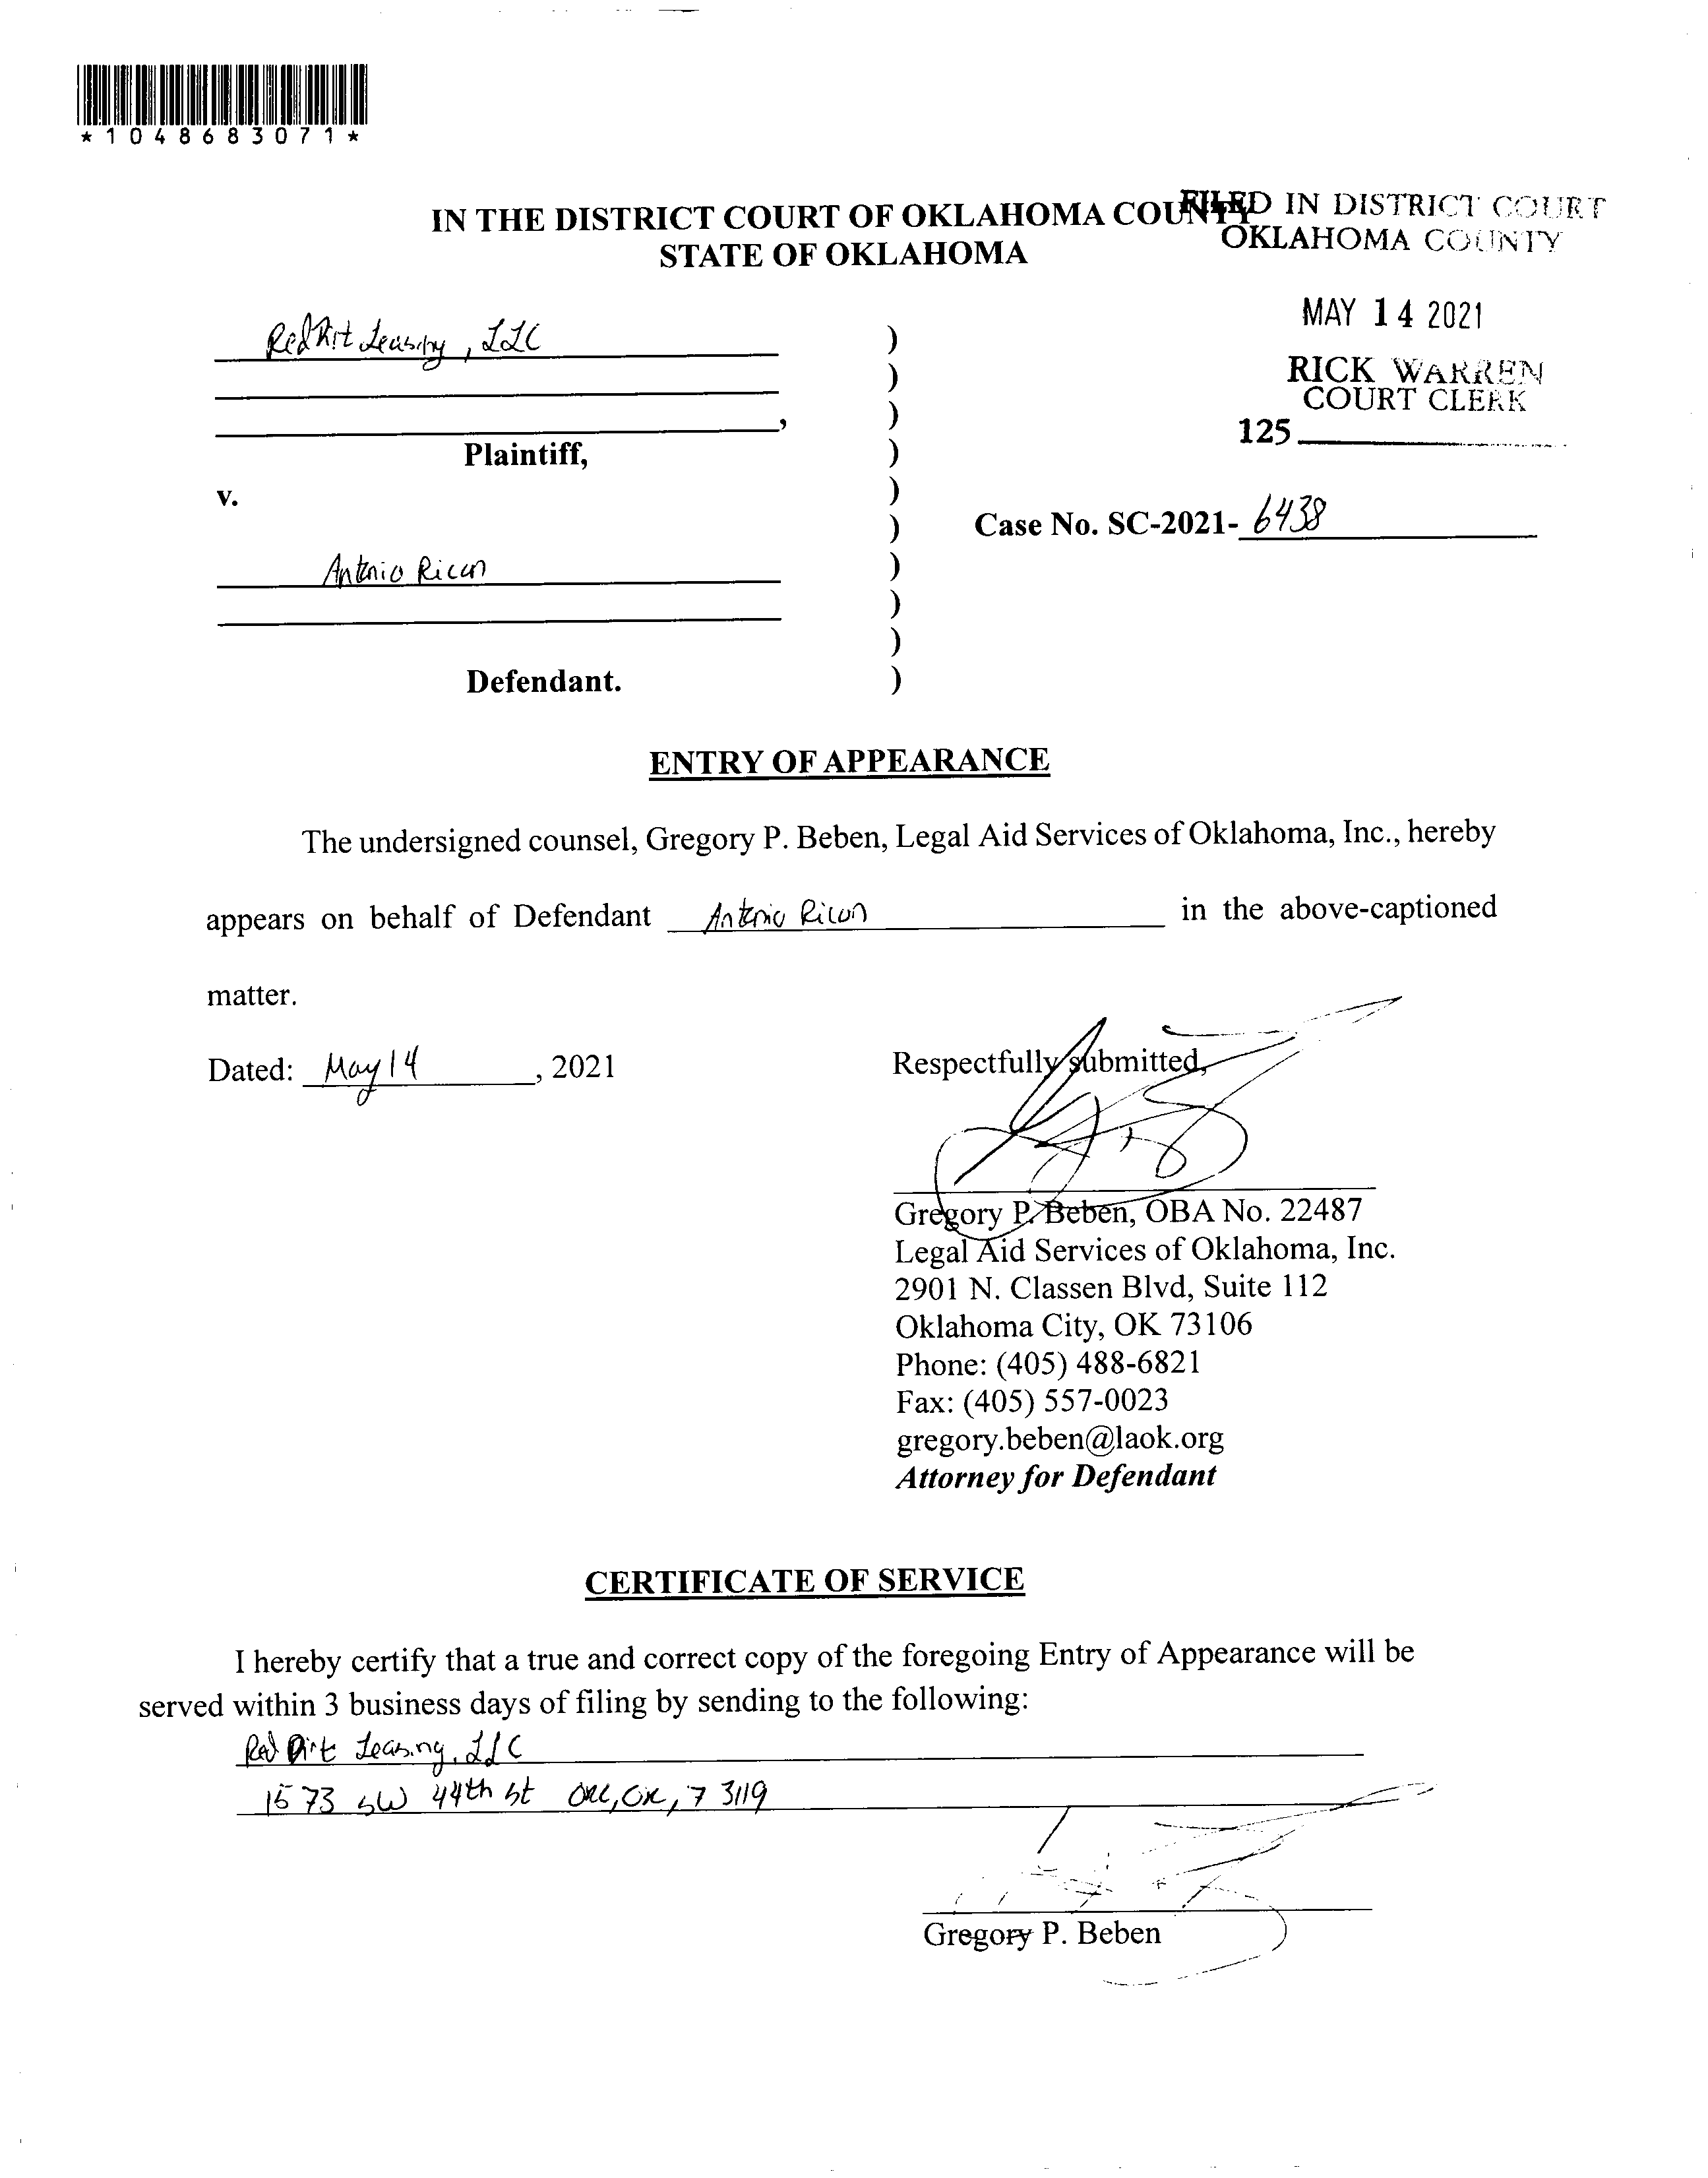 *1048683071*
IN THE DISTRICT COURT OF OKLAHOMA COUNTY
STATE OF OKLAHOMA
FILED IN DISTRICT COURT
OKLAHOMA COUNTY
MAY 14 2021
RICK WARREN
COURT CLERK
125
Red Dirt Leasing, LLC
)
)
,
)
Plaintiff,
)
v.
)
)
Case No. SC-2021- 6438
Antonio Ricon
)
)
)
Defendant.
)
ENTRY OF APPEARANCE
The undersigned counsel, Gregory P. Beben, Legal Aid Services of Oklahoma, Inc., hereby
appears on behalf of Defendant Antonio Ricon in the above-captioned
matter.
Dated: May 14, 2021
Respectfully submitted,
Gregory P. Beben, OBA No. 22487
Legal Aid Services of Oklahoma, Inc.
2901 N. Classen Blvd, Suite 112
Oklahoma City, OK 73106
Phone: (405) 488-6821
Fax: (405) 557-0023
gregory.beben@laok.org
Attorney for Defendant
CERTIFICATE OF SERVICE
I hereby certify that a true and correct copy of the foregoing Entry of Appearance will be
served within 3 business days of filing by sending to the following:
Red Dirt Leasing, LLC
1573 SW 44th St OKC, OK, 73119
Gregory P. Beben